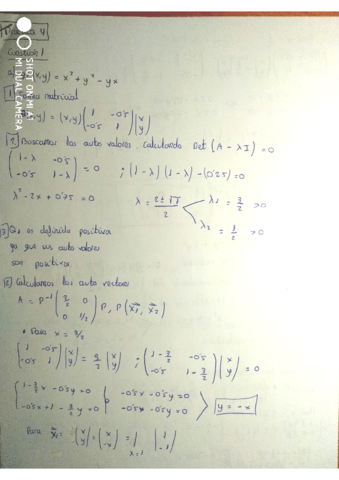 Cuestión 1
(x,y) = x² + y² - yx
1 matricial
(x,y) = (x,y) (1 -0'5 / -0'5 1) (x / y)
2 Buscamos los auto valores. Calculando Det (A - λI) = 0
(1-λ -0'5 / -0'5 1-λ) = 0 ; (1-λ)(1-λ) - (0'25) = 0
λ² - 2λ + 0'75 = 0 λ = (2 ± √1)/2 λ₁ = 3/2 > 0
λ₂ = 1/2 > 0
3 Q₁ es definida positiva
ya que sus auto valores
son positivos.
Calculamos los auto vectores
A = P⁻¹ (3/2 0 / 0 1/2) P, P(x⃗₁, x⃗₂)
• Para x = 3/2
(1 -0'5 / -0'5 1) (x / y) = 3/2 (x / y) ; (1-3/2 -0'5 / -0'5 1-3/2) (x / y) = 0
1-3/2x -0'5y = 0 -0'5x -0'5y = 0
-0'5x + 1-3/2 y = 0 -0'5x -0'5y = 0 y = -x
Para x⃗₁ = (x / y) = (x / -x) = | λ=1 | 1 / -1 |
SHOT ON MI
MI DUAL CAMERA